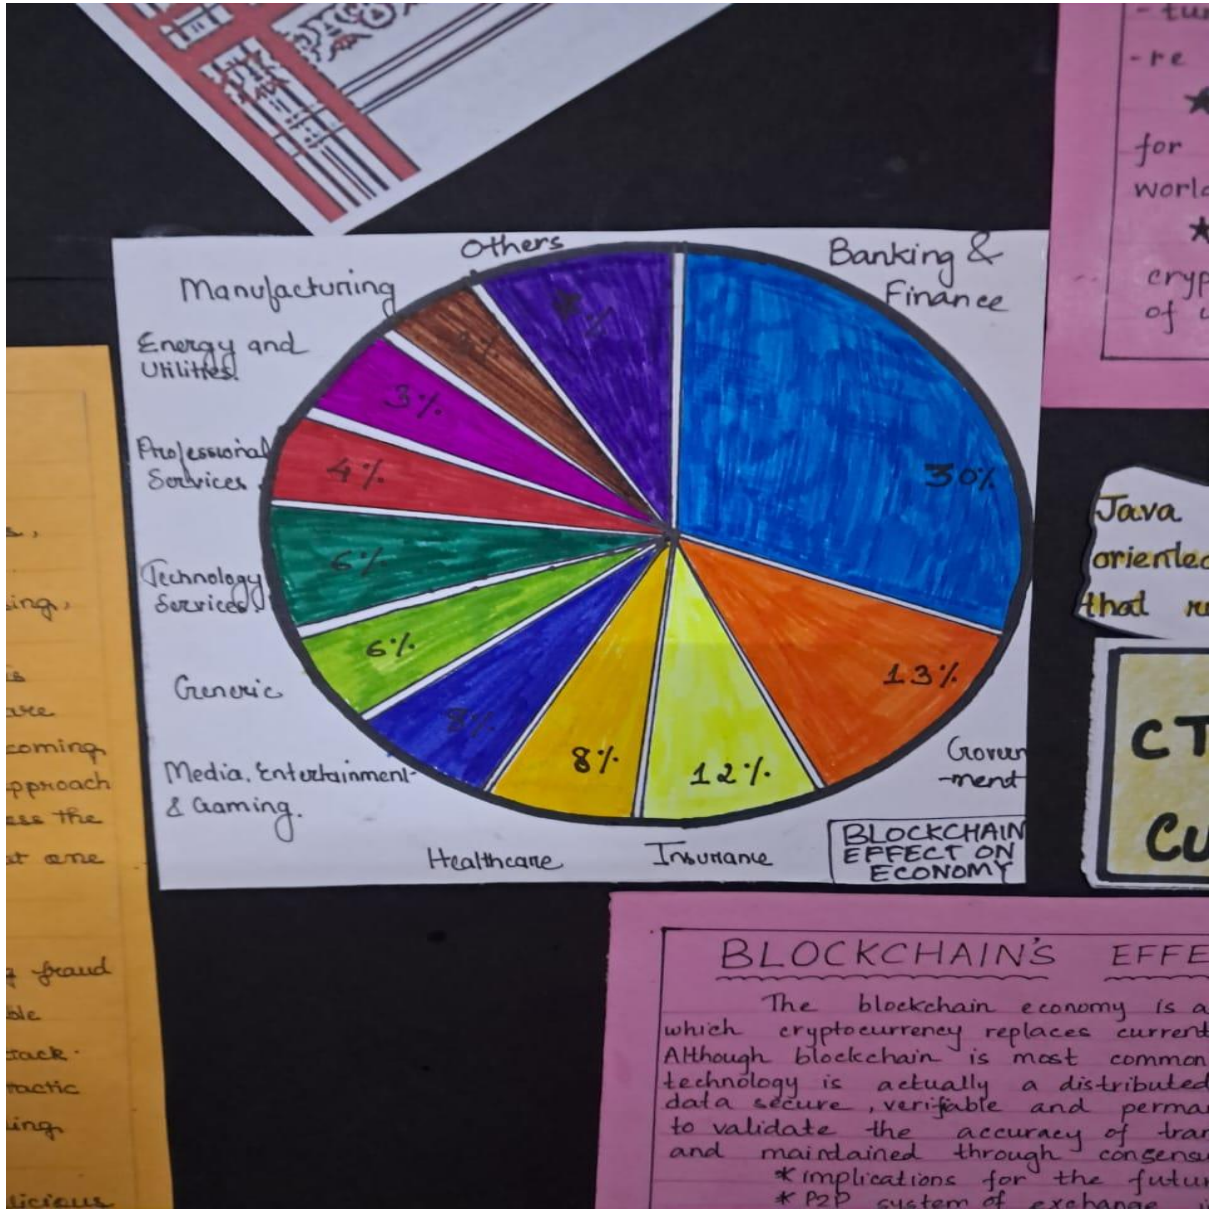 - re
for
world
cryp
of
Others
Banking &
Finance
Manufacturing
Energy and
Utilities.
Professional
Services.
Technology
Services
Generic
Media, Entertainment
& Gaming.
Healthcare
Insurance
Govern
-ment
30%
13%
12%
8%
8%
6%
6%
4%
3%
BLOCKCHAIN
EFFECT ON
ECONOMY
Java
oriented
that
CT
CU
ing,
are
coming
approach
ess the
at one
fraud
ble
tack.
tactic
ing
licious
BLOCKCHAIN'S EFFE
The blockchain economy is a
which cryptocurrency replaces current
Although blockchain is most common
technology is actually a distributed
data secure, verifiable and perma
to validate the accuracy of tran
and maintained through consensu
* implications for the futur
* P2P system of exchange